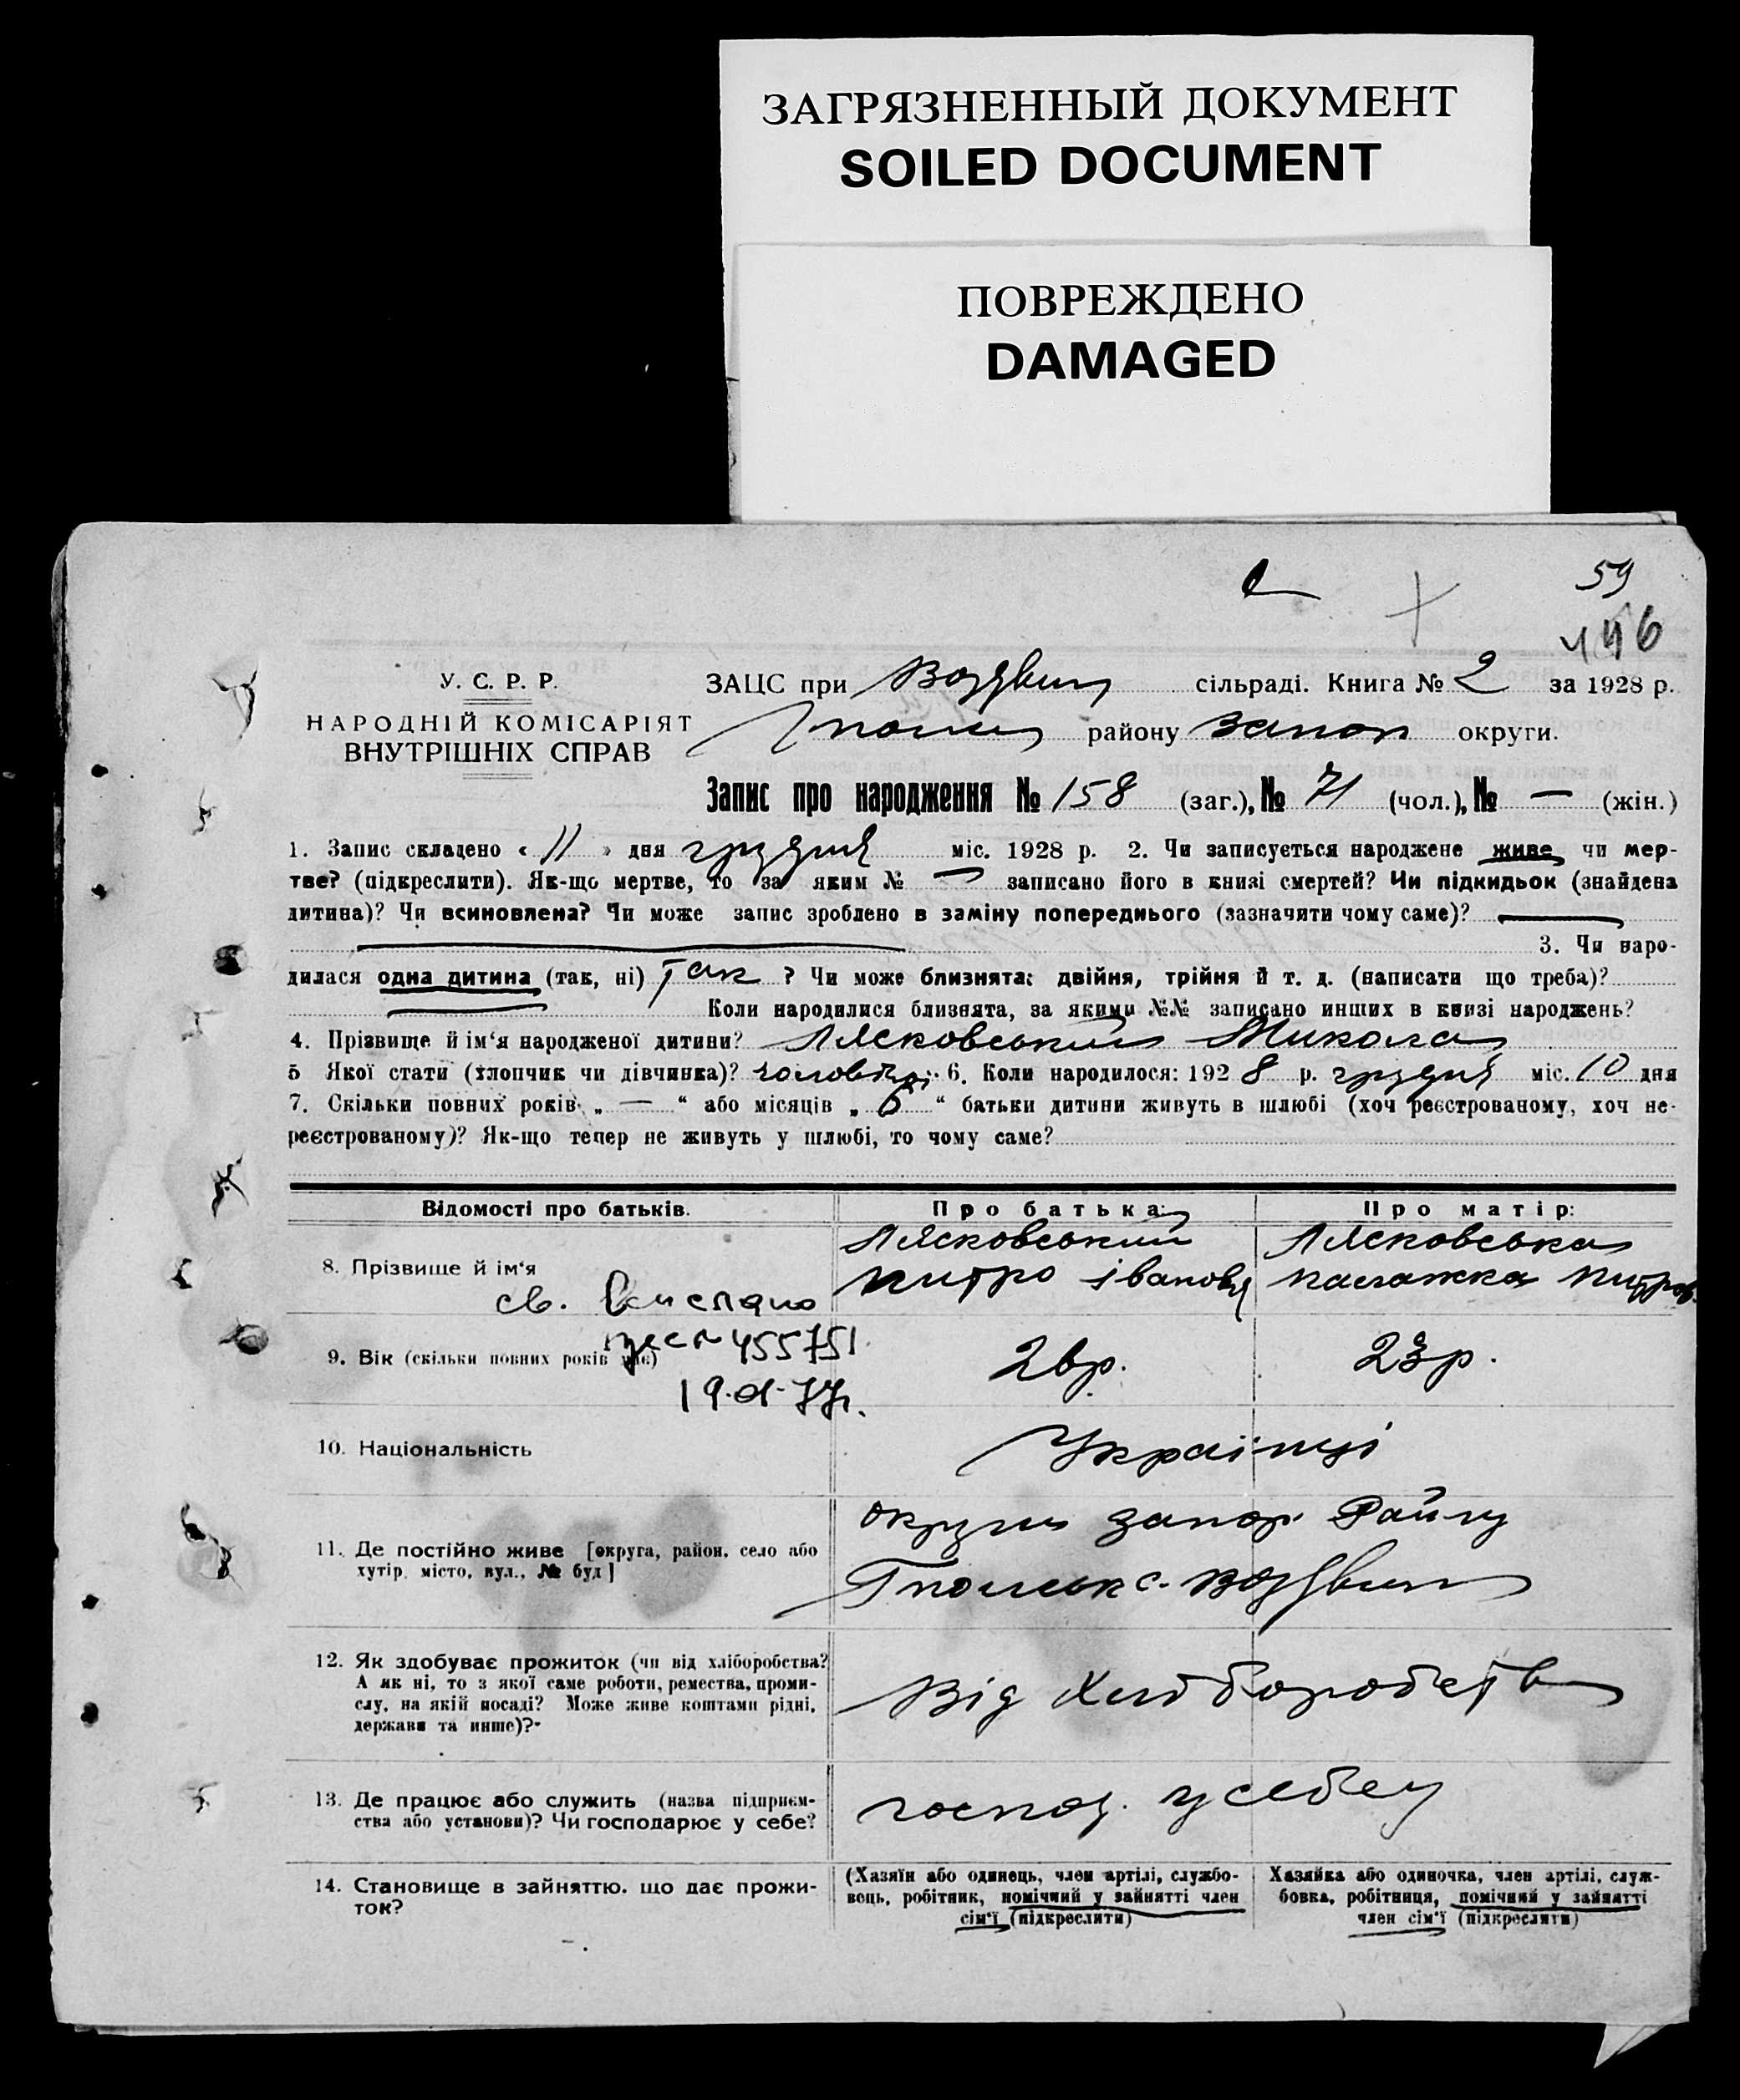 ЗАГРЯЗНЕННЫЙ ДОКУМЕНТ
SOILED DOCUMENT
ПОВРЕЖДЕНО
DAMAGED
59
446
У. С. Р. Р.
НАРОДНІЙ КОМІСАРІЯТ
ВНУТРІШНІХ СПРАВ
ЗАЦС при Воздвиж сільраді. Книга № 2 за 1928 р.
району Запор округи.
Запис про народження № 158 (заг.), № 71 (чол.), № — (жін.)
1. Запис складено « 11 » дня грудня міс. 1928 р. 2. Чи записується народжене живе чи мер-
тве? (підкреслити). Як-що мертве, то за яким № — записано його в книзі смертей? Чи підкидьок (знайдена
дитина)? Чи всиновлена? Чи може запис зроблено в заміну попереднього (зазначити чому саме)? —
3. Чи наро-
дилася одна дитина (так, ні) так ? Чи може близнята: двійня, трійня й т. д. (написати що треба)?
Коли народилися близнята, за якими №№ записано инших в книзі народжень?
4. Прізвище й ім'я народженої дитини? Лясковський Микола
5 Якої стати (хлопчик чи дівчинка)? чоловічої 6. Коли народилося: 1928 р. грудня міс. 10 дня
7. Скільки повних років „ — “ або місяців „ 6 “ батьки дитини живуть в шлюбі (хоч реєстрованому, хоч не-
реєстрованому)? Як-що тепер не живуть у шлюбі, то чому саме?
Відомості про батьків.
Про батька:
Про матір:
8. Прізвище й ім'я
Лясковський
Митро Іванови
Лясковська
Митров.
св.
№ 455751
9. Вік (скільки повних років має)
26р.
23р.
10. Національність
Українці
11. Де постійно живе [округа, район, село або
хутір, місто, вул., № буд]
округи Запор. Району
с. Воздвиж
12. Як здобуває прожиток (чи від хліборобства?
А як ні, то з якої саме роботи, ремества, проми-
слу, на якій посаді? Може живе коштами рідні,
держави та инше)?
Від Хліборобств
13. Де працює або служить (назва підприєм-
ства або установи)? Чи господарює у себе?
господ. у себе
14. Становище в зайняттю, що дає прожи-
ток?
(Хазяїн або одинець, член артілі, службо-
вець, робітник, помічний у зайнятті член
сім'ї (підкреслити)
Хазяйка або одиночка, член артілі, служ-
бовка, робітниця, помічний у зайнятті
член сім'ї (підкреслити)